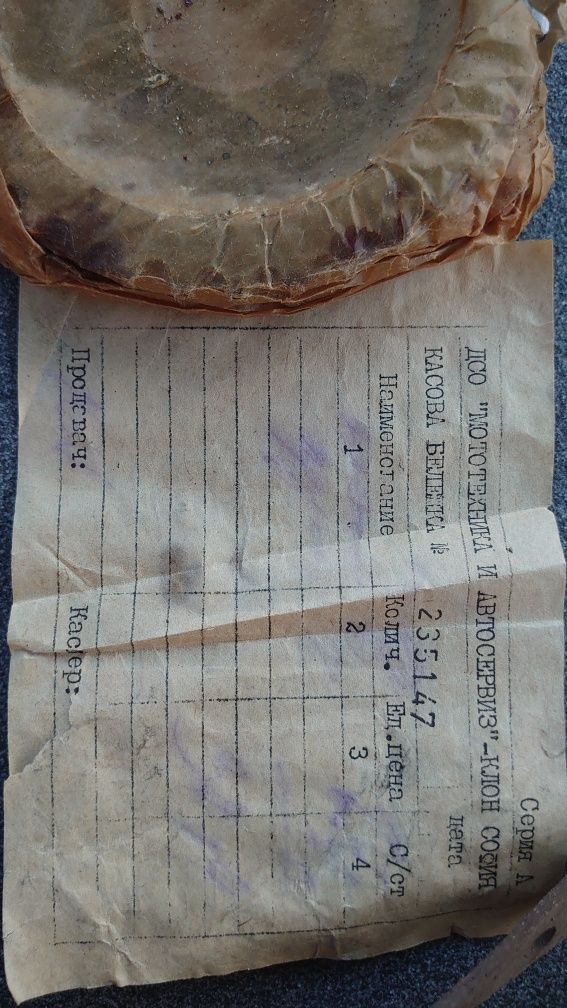 Серия А
ДСО "МОТОТЕХНИКА И АВТОСЕРВИЗ"-КЛОН СОФИЯ
КАСОВА БЕЛЕЖКА № 235147 цата
Наименотание Колич. Ед.цена С/ст
1 2 3 4
Продавач: Касиер: